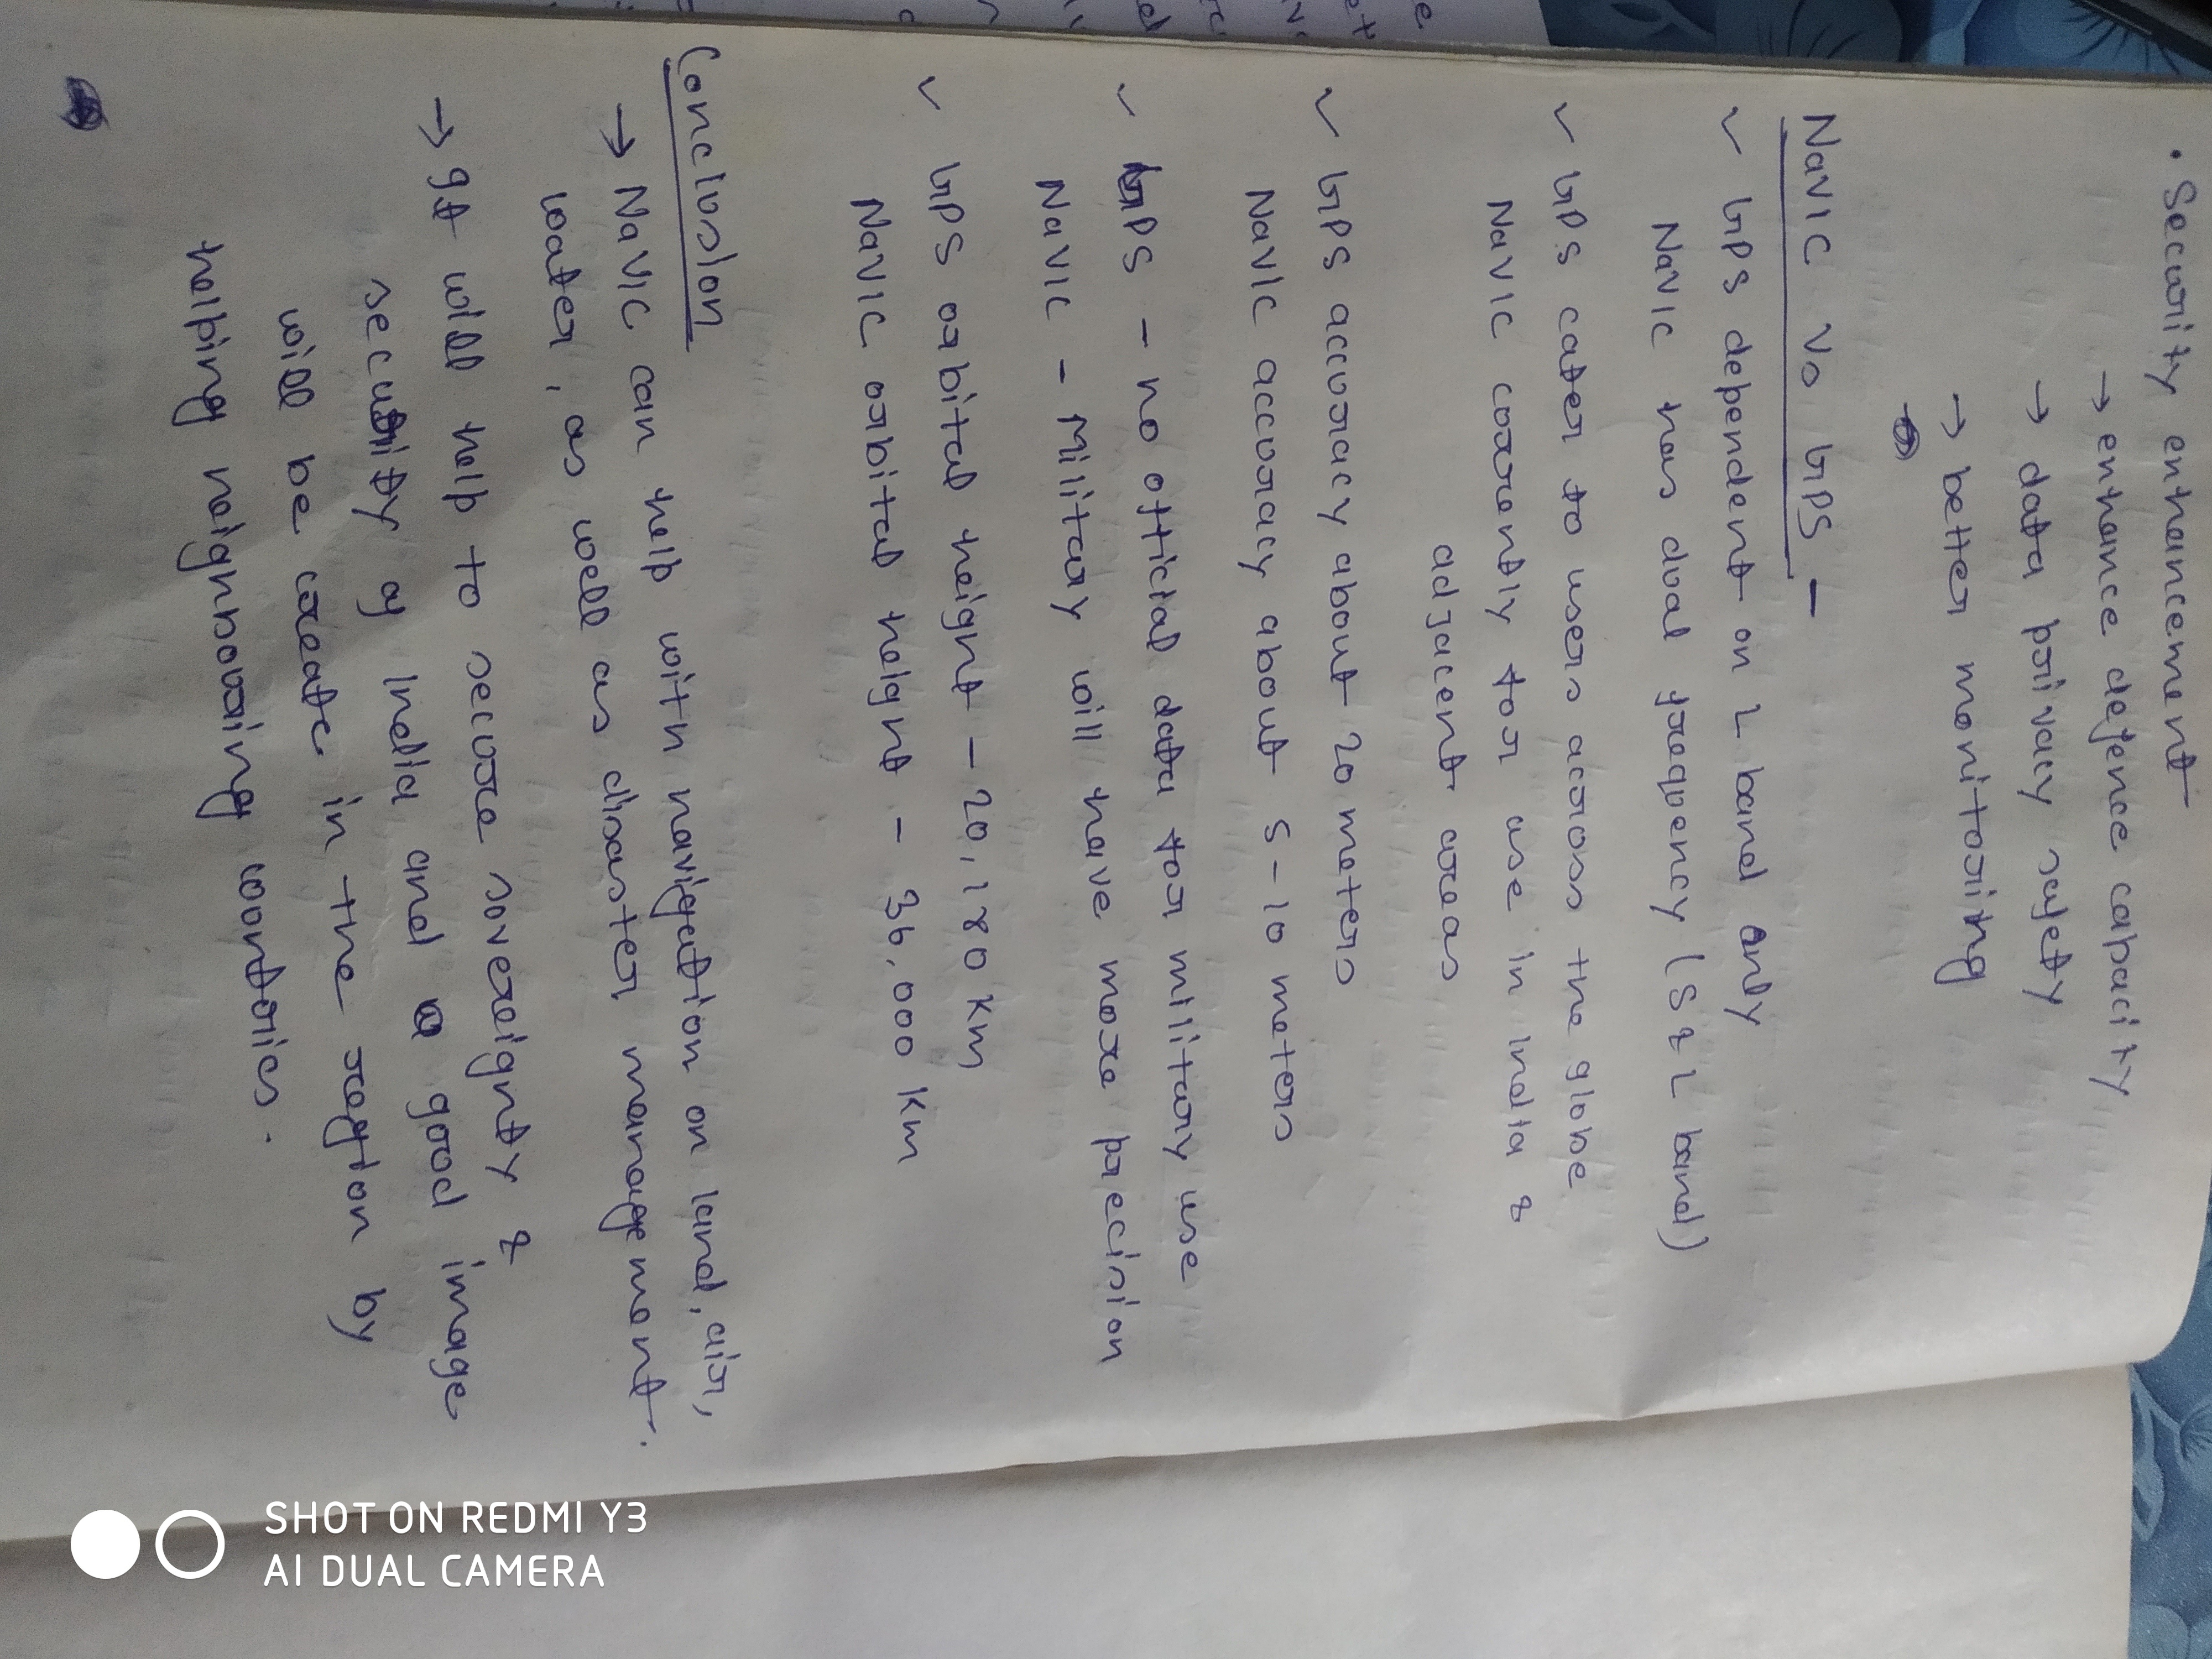 • Security enhancement
→ enhance defence capacity
→ data privacy safety
→ better monitoring
NavIC Vs GPS -
✓ GPS dependent on L band only
NavIC has dual frequency (S & L band)
✓ GPS cater to users across the globe
NavIC currently for use in India &
adjacent areas
✓ GPS accuracy about 20 meters
NavIC accuracy about 5-10 meters
✓ GPS - no official data for military use
NavIC - Military will have more precision
✓ GPS orbital height - 20,180 km
NavIC orbital height - 36,000 km
Conclusion
→ NavIC can help with navigation on land, air,
water, as well as disaster management.
→ It will help to secure sovereignty &
security of India and a good image
will be create in the region by
helping neighbouring countries.
SHOT ON REDMI Y3
AI DUAL CAMERA